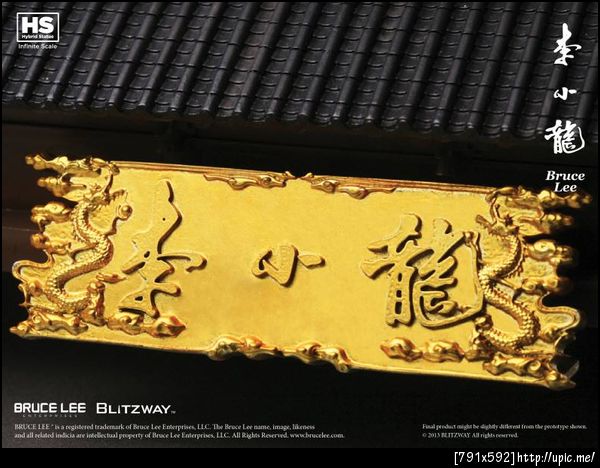 HS
Hybrid Statue
Infinite Scale
李
小
龍
Bruce
Lee
李小龍
BRUCE LEE
ENTERPRISES
BLITZWAY™
BRUCE LEE® is a registered trademark of Bruce Lee Enterprises, LLC. The Bruce Lee name, image, likeness
and all related indicia are intellectual property of Bruce Lee Enterprises, LLC. All Rights Reserved. www.brucelee.com.
Final product might be slightly different from the prototype shown.
© 2013 BLITZWAY. All rights reserved.
[791x592]http://upic.me/